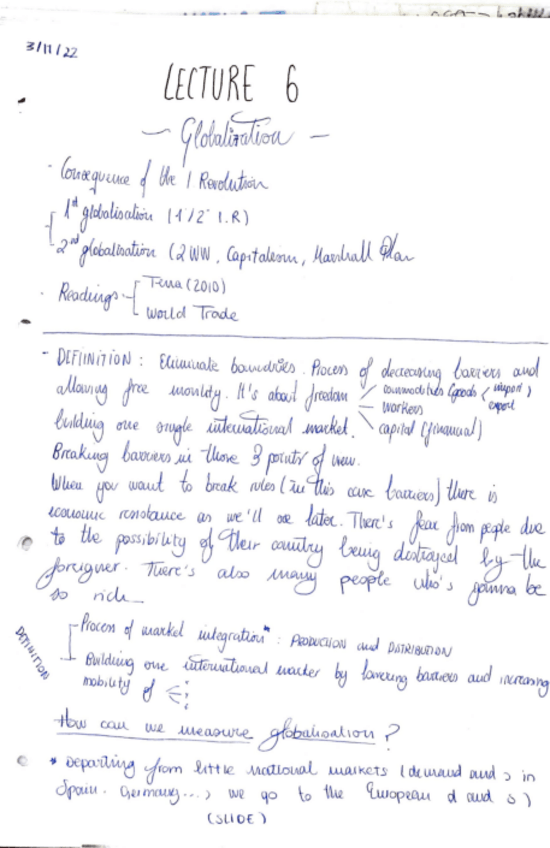 3/11/22
LECTURE 6
- Globalization -
- Consequence of the I Revolution
1st globalisation (1º/2º I.R)
2nd globalisation (2WW, Capitalism, Marshall Plan
· Readings Tena (2010)
World Trade
- DEFIINITION: Eliminate boundries. Process of decreasing barriers and
allowing free movility. It's about freedom commodities (goods (import)
workers export
building one single international market. capital (financial)
Breaking barriers in those 3 points of view.
When you want to break rules (in this case barriers) there is
economic resistance as we'll see later. There's fear from people due
to the possibility of their country being destroyed by the
foreigner. There's also many people who's gonna be
so rich_
DEFINITION
Process of market integration*: PRODUCTION and DISTRIBUTION
Building one international market by lowering barriers and increasing
mobility of
How can we measure globalisation?
* Departing from little national markets (demand and s in
Spain. Germany...) we go to the European d and s)
(SLIDE)